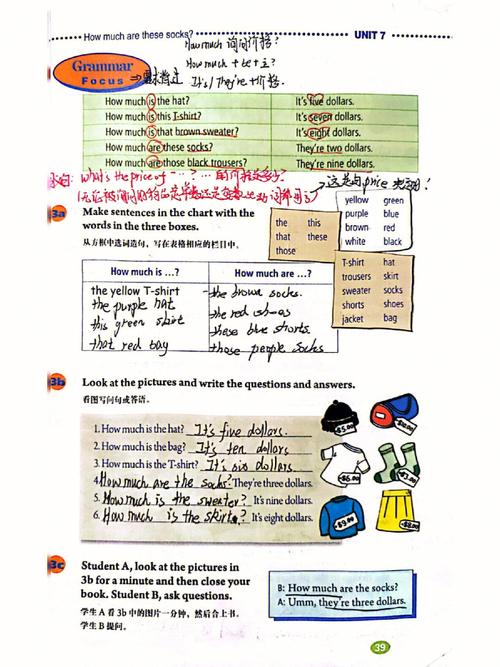 How much are these socks?
UNIT 7
How much 询问价格?
How much + be + 主?
Grammar
Focus
⇒要求背过
It's / They're + 价格.
How much is the hat? It's five dollars.
How much is this T-shirt? It's seven dollars.
How much is that brown sweater? It's eight dollars.
How much are these socks? They're two dollars.
How much are those black trousers? They're nine dollars.
What's the price of …? …的价格是多少?
这是由price决定!
3a
Make sentences in the chart with the
words in the three boxes.
从方框中选词造句,写在表格相应的栏目中。
the this
that these
those
yellow green
purple blue
brown red
white black
T-shirt hat
trousers skirt
sweater socks
shorts shoes
jacket bag
How much is …? How much are …?
the yellow T-shirt the brown socks.
the purple hat the red shoes
this green shirt these blue shorts
that red bag those perple socks
3b
Look at the pictures and write the questions and answers.
看图写问句或答语。
1. How much is the hat? It's five dollars.
2. How much is the bag? It's ten dollars
3. How much is the T-shirt? It's six dollars
4. How much are the socks? They're three dollars.
5. How much is the sweater? It's nine dollars.
6. How much is the skirt? It's eight dollars.
$5.00
$10.00
$6.00
$3.00
$9.00
$8.00
3c
Student A, look at the pictures in
3b for a minute and then close your
book. Student B, ask questions.
学生 A 看 3b 中的图片一分钟,然后合上书。
学生 B 提问。
B: How much are the socks?
A: Umm, they're three dollars.
39